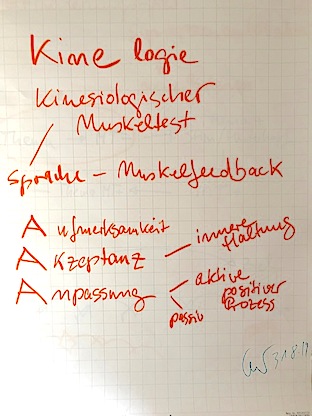 Kine logie
Kinesiologischer
Muskeltest
Sprache – Muskelfeedback
Aufmerksamkeit
Akzeptanz – innere Haltung
Anpassung – aktive positiver Prozess
passiv